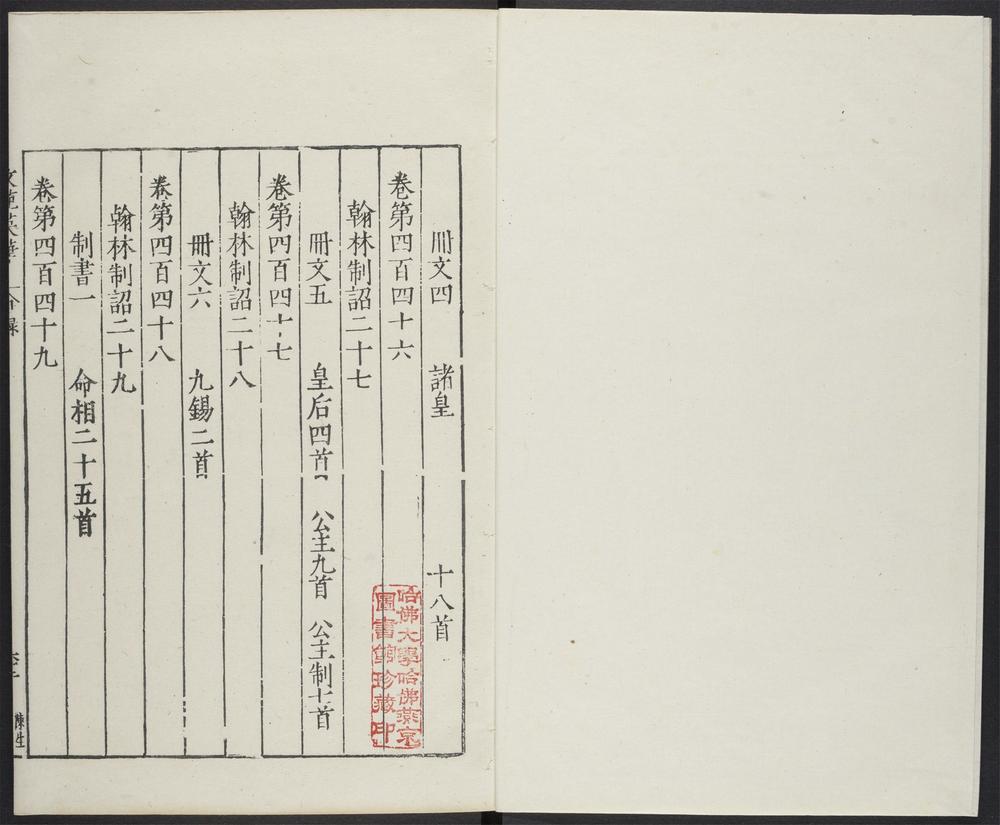 冊文四　諸皇　十八首
卷第四百四十六
翰林制詔二十七
冊文五　皇后四首　公主九首　公主制七首
卷第四百四十七
翰林制詔二十八
冊文六　九錫二首
卷第四百四十八
翰林制詔二十九
制書一　命相二十五首
卷第四百四十九
哈佛大學哈佛燕京
圖書館珍藏印